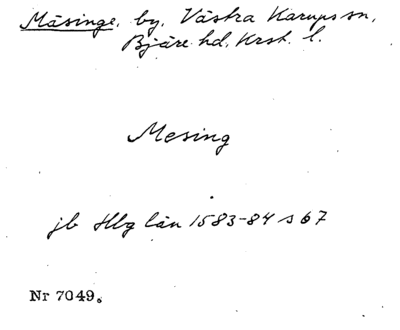 Mäsinge, by, Västra Karups sn,
Bjäre hd, Krst. l.
Mesing
jb Hbg län 1583-84 s 67
Nr 7049.